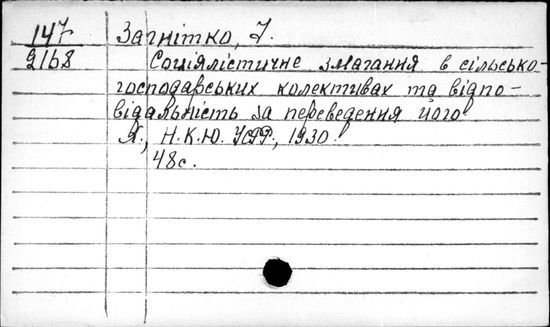 147 Загнітко, І.
2168 Соціялістичне змагання в сільсько-
господарських колективах та відпо-
відальність за переведення його!
Х., Н.К.Ю. УСРР, 1930!
48с.